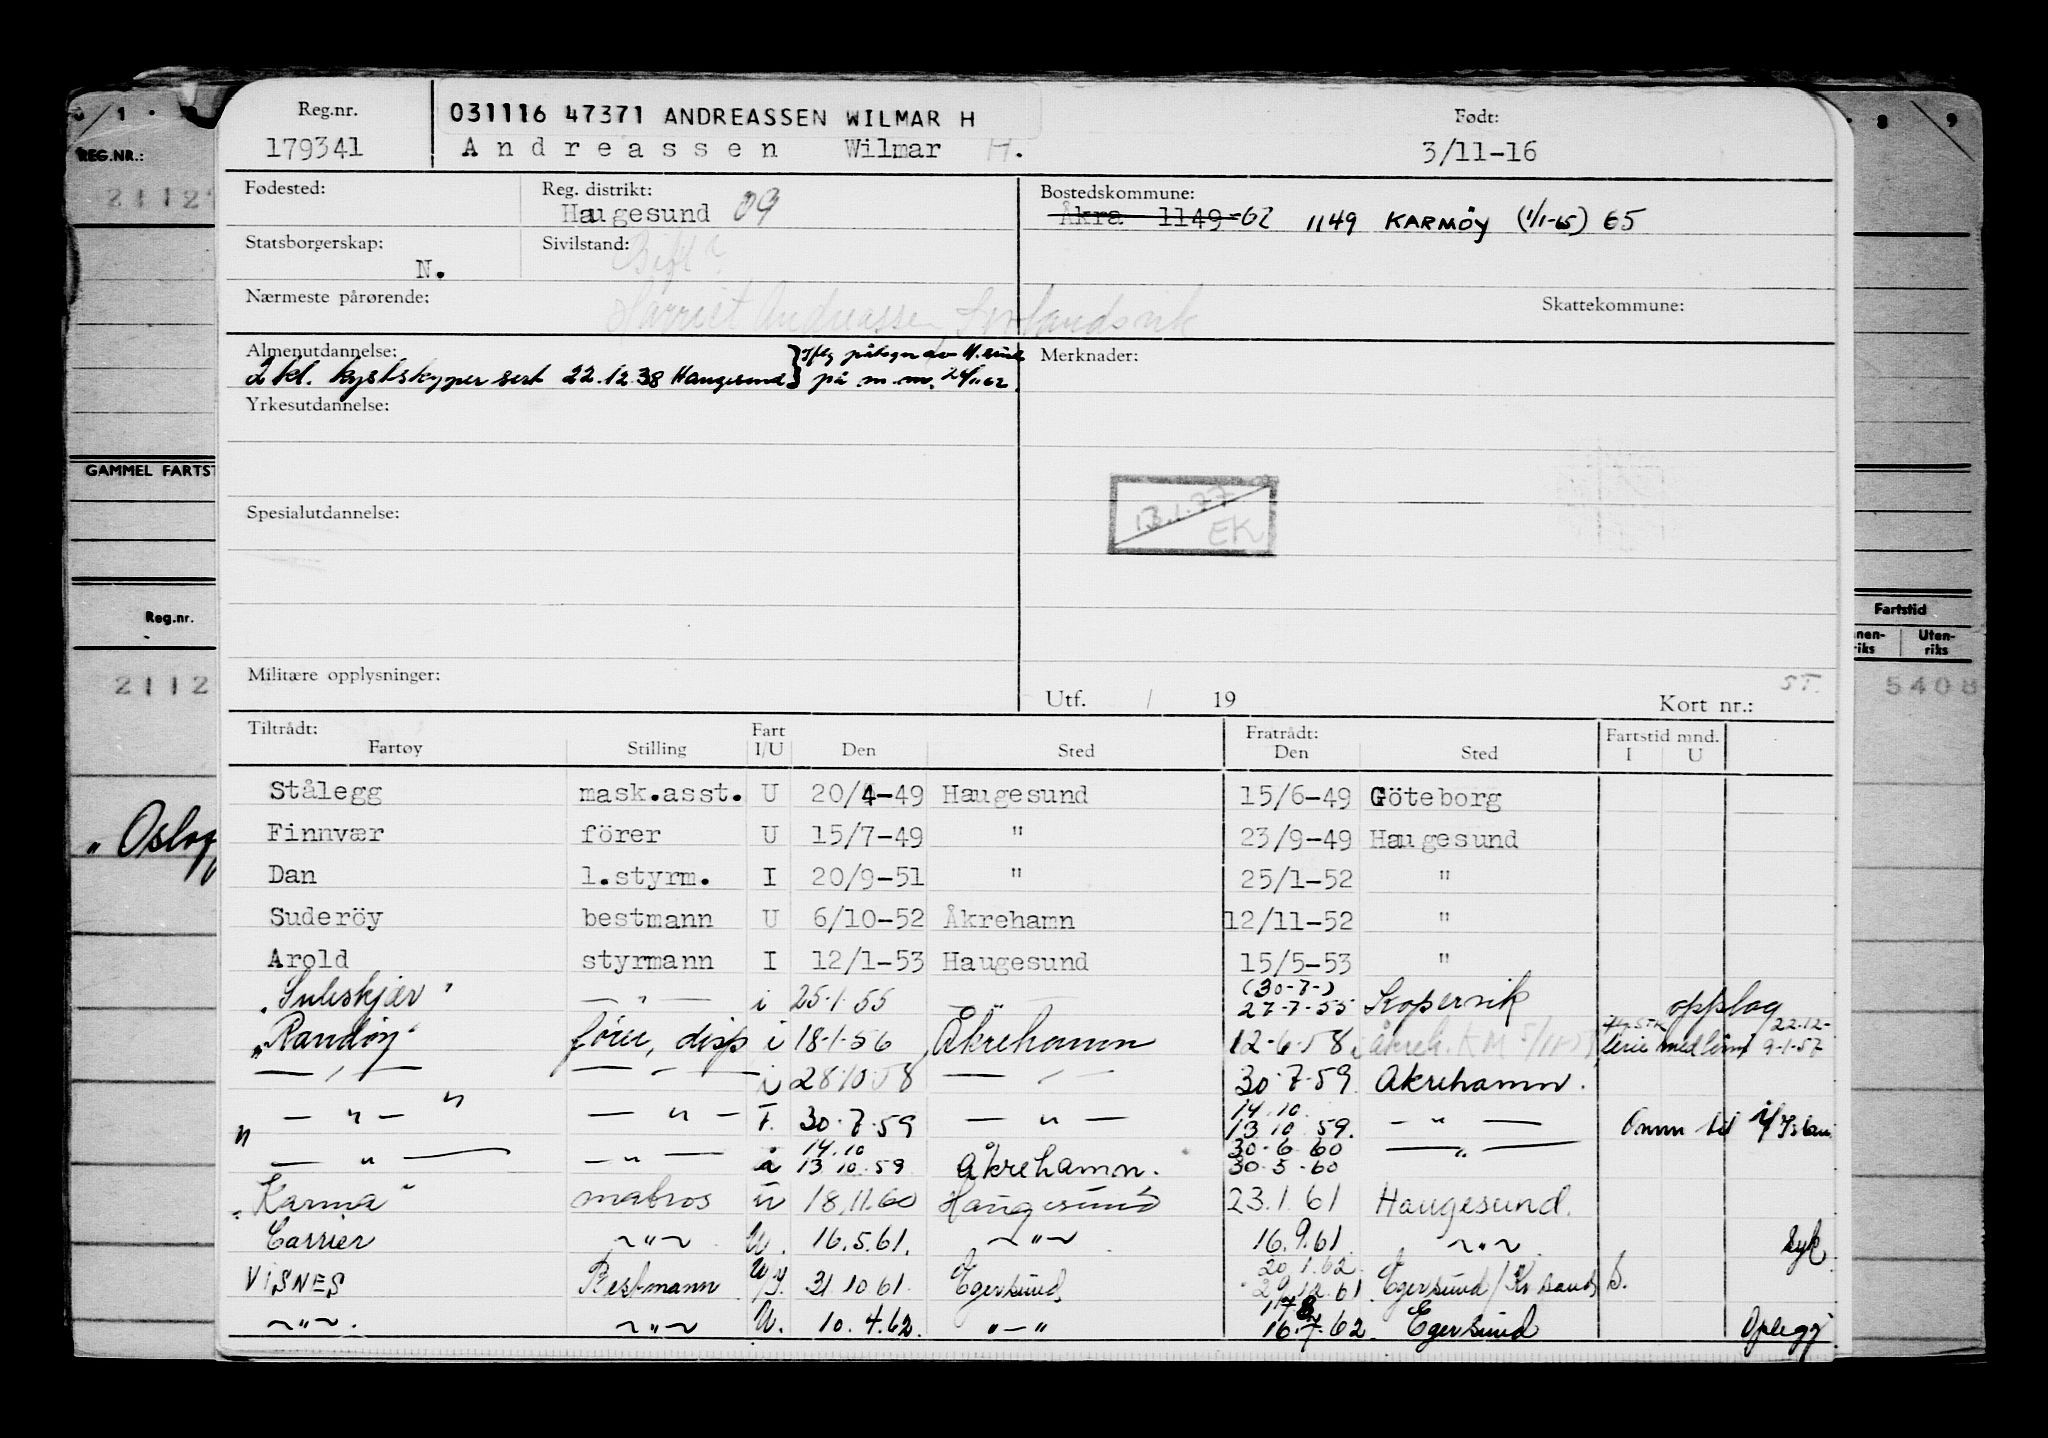 Reg.nr.
179341
031116 47371 ANDREASSEN WILMAR H
Andreassen Wilmar H.
Født:
3/11-16
REG.NR.:
Fødested:
Reg. distrikt:
Haugesund 09
Bostedskommune:
Åkra 1149-62 1149 KARMÖY (1/1-65) 65
Statsborgerskap:
N.
Sivilstand:
Gift
Nærmeste pårørende:
Harriet Andreassen
Skattekommune:
Almenutdannelse:
2 kl. kystskipper sert 22.12.38 Haugesund
på m.m.
Merknader:
Yrkesutdannelse:
GAMMEL FARTST
13.1.77
EK
Spesialutdannelse:
Reg.nr.
Fartstid
Uten-
riks
Militære opplysninger:
Utf. / 19
ST.
Kort nr.:
2112
5408
Tiltrådt:
Fartøy Stilling Fart I/U Den Sted Fratrådt: Den Sted Fartstid mnd. I U
Stålegg mask.asst. U 20/4-49 Haugesund 15/6-49 Göteborg
Finnvær förer U 15/7-49 " 23/9-49 Haugesund
Dan 1.styrm. I 20/9-51 " 25/1-52 "
Suderöy bestmann U 6/10-52 Åkrehamn 12/11-52 "
Arold styrmann I 12/1-53 Haugesund 15/5-53 "
"Suleskjær" — " — i 25.1.55 (30-7-) 27-7-55 Kopervik opplag
"Randöy" förer, disp i 18-1-56 Åkrehamn 12-6-58 22.12- 9-1-57
— " — — " — i 28.10.58 — " — 30.7.59 Åkrehamn.
— " — — " — F. 30.7.59 — " — 14.10 13.10.59. — " —
— " — — " — 14.10 13.10.59 Åkrehamn. 30-6-60 30-5-60 — " —
"Karma" matros u 18.11.60 Haugesund 23.1.61 Haugesund.
Carrier ~"~ U. 16.5.61. ~"~ 16.9.61 ~"~ syk.
VISNES Bestmann 31.10.61 Egersund 20.1.62 Egersund / Kr sand S.
~"~. ~"~ U. 10.4.62. "—" 62. Egersund Oplegg